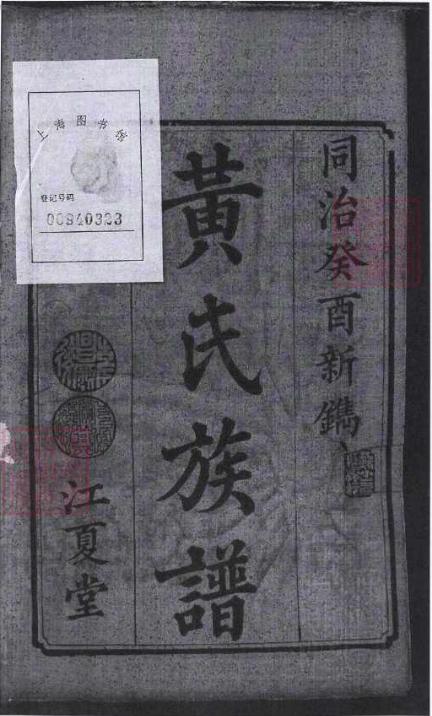 同治癸酉新鐫
黃氏族譜
江夏堂
上海图书馆
登记号码
00940323